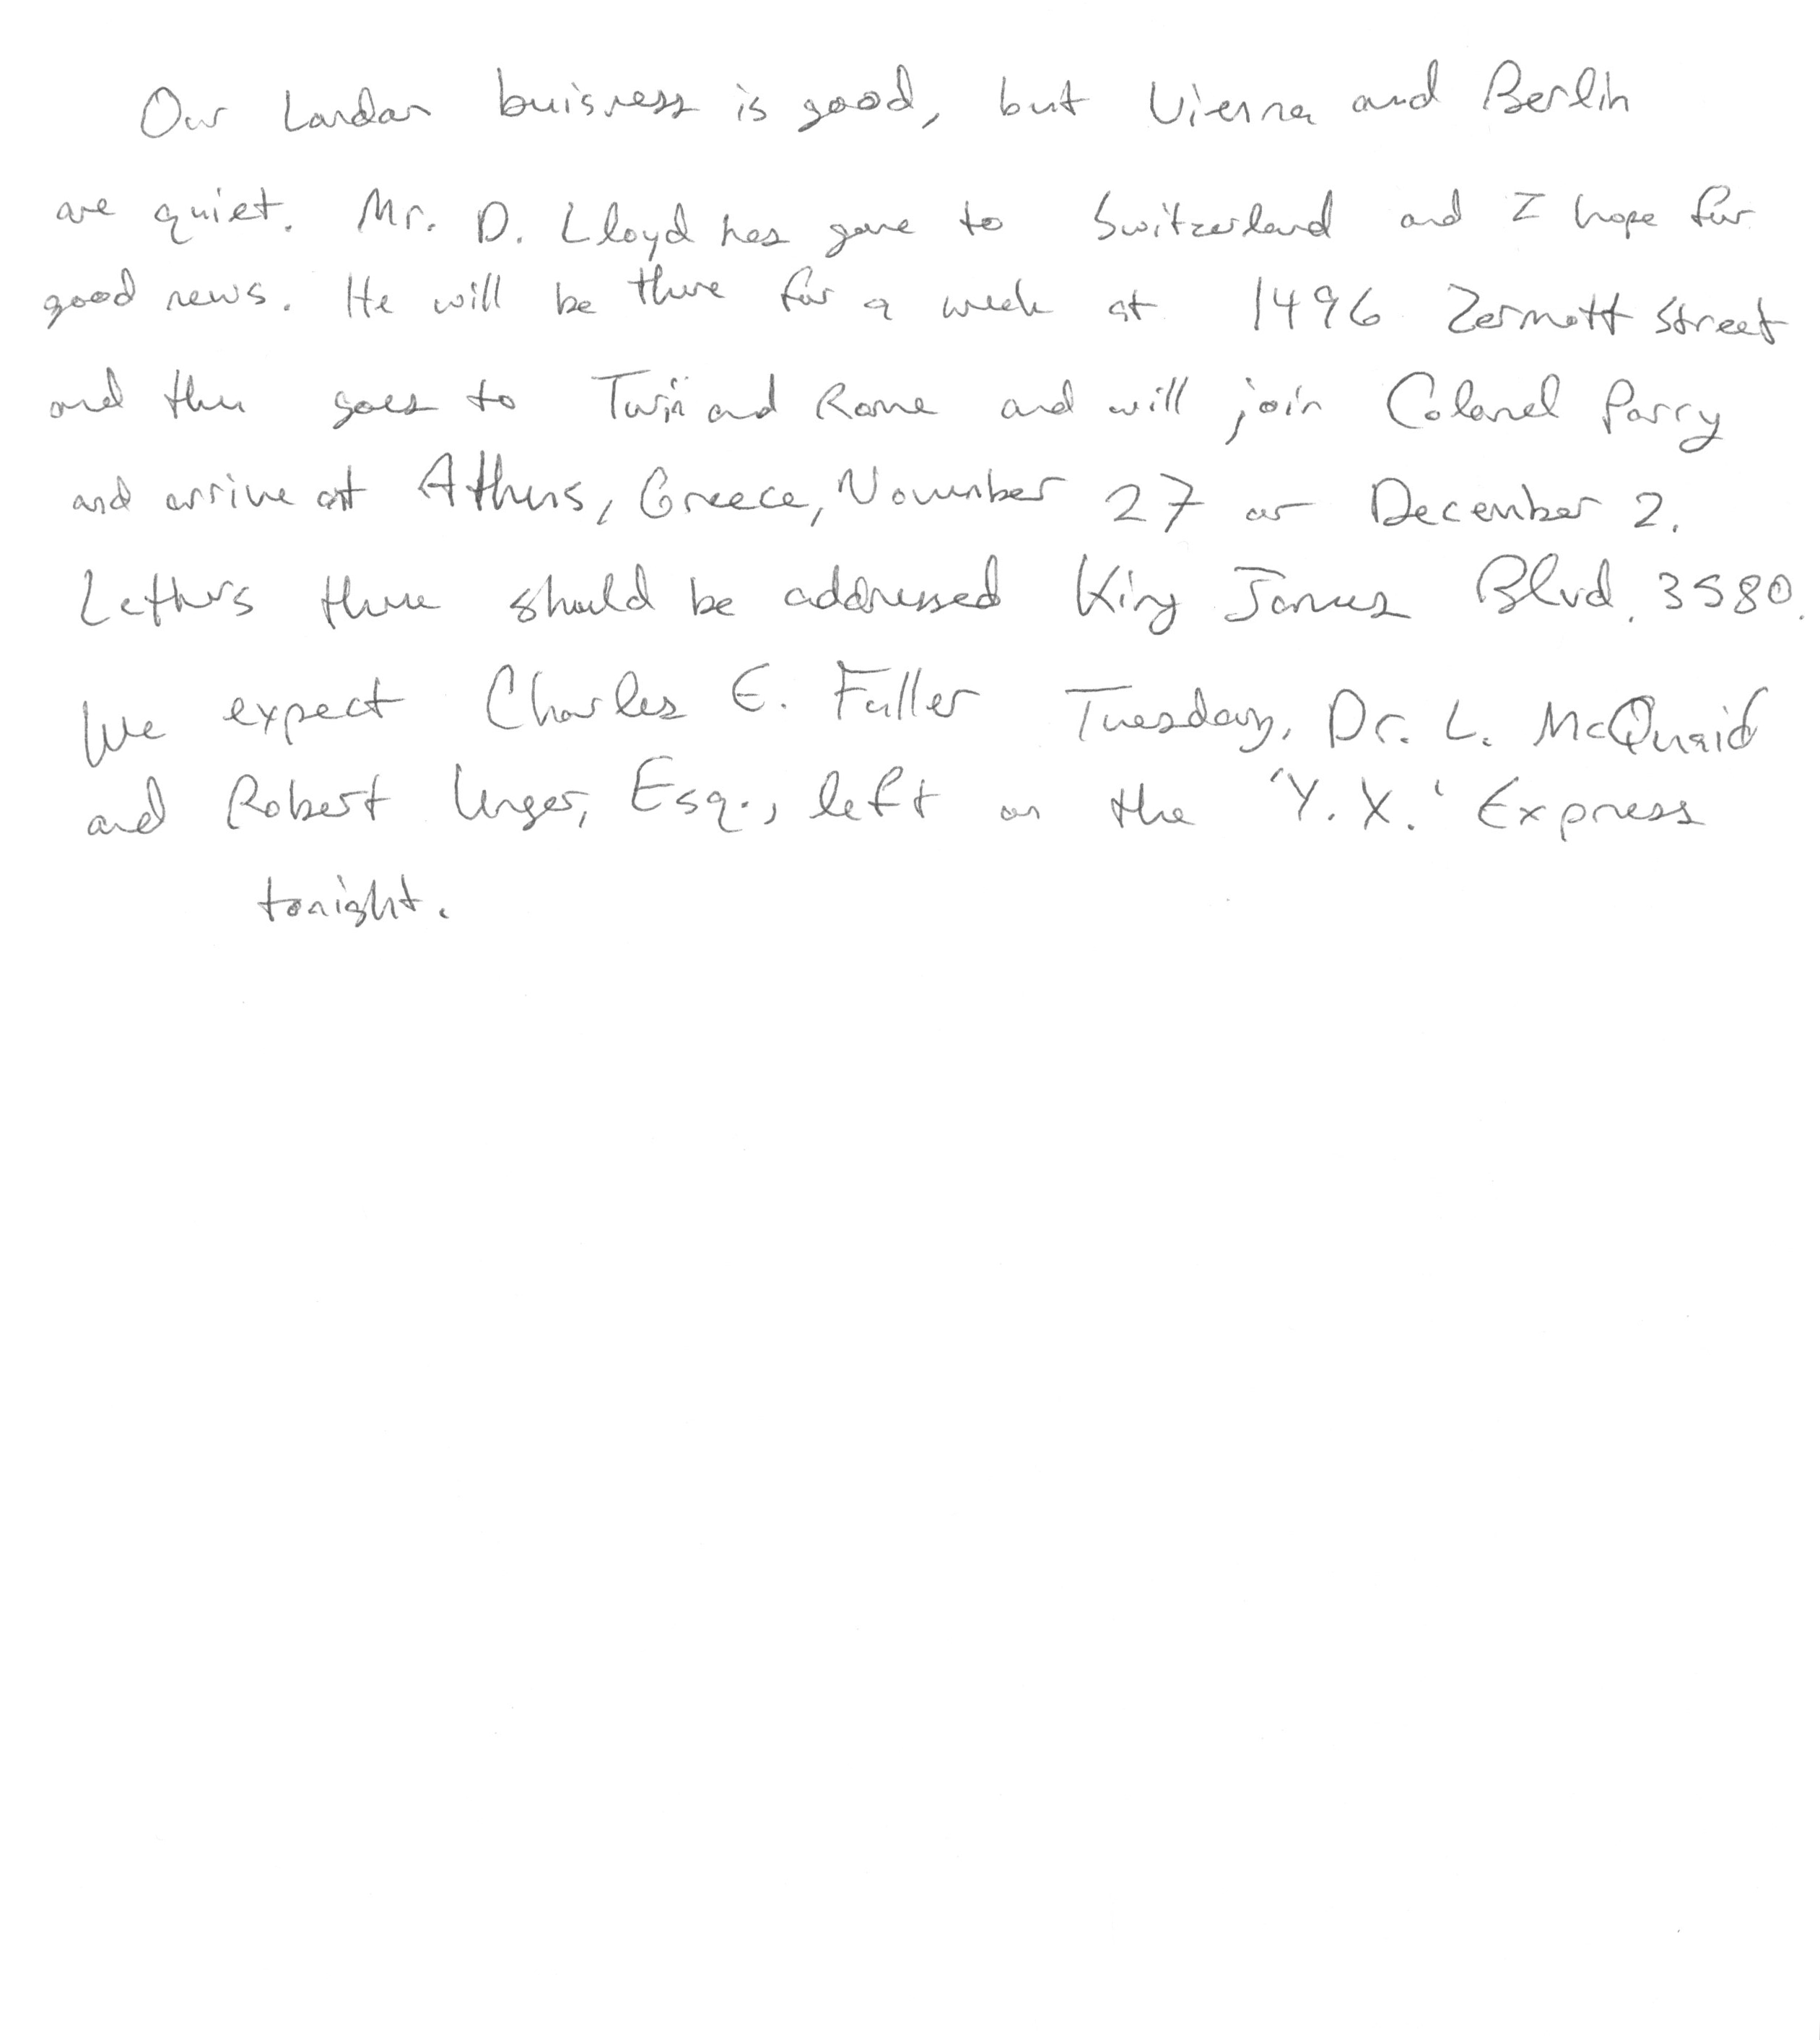 Our London buisness is good, but Vienna and Berlin
are quiet. Mr. D. Lloyd has gone to Switzerland and I hope for
good news. He will be there for a week at 1496 Zermott Street
and then goes to Turin and Rome and will join Colonel Parry
and arrive at Athens, Greece, November 27 or December 2.
Letters there should be addressed King James Blvd. 3580.
We expect Charles E. Fuller Tuesday, Dr. L. McQuaid
and Robert Unger, Esq., left on the 'Y.X.' Express
tonight.